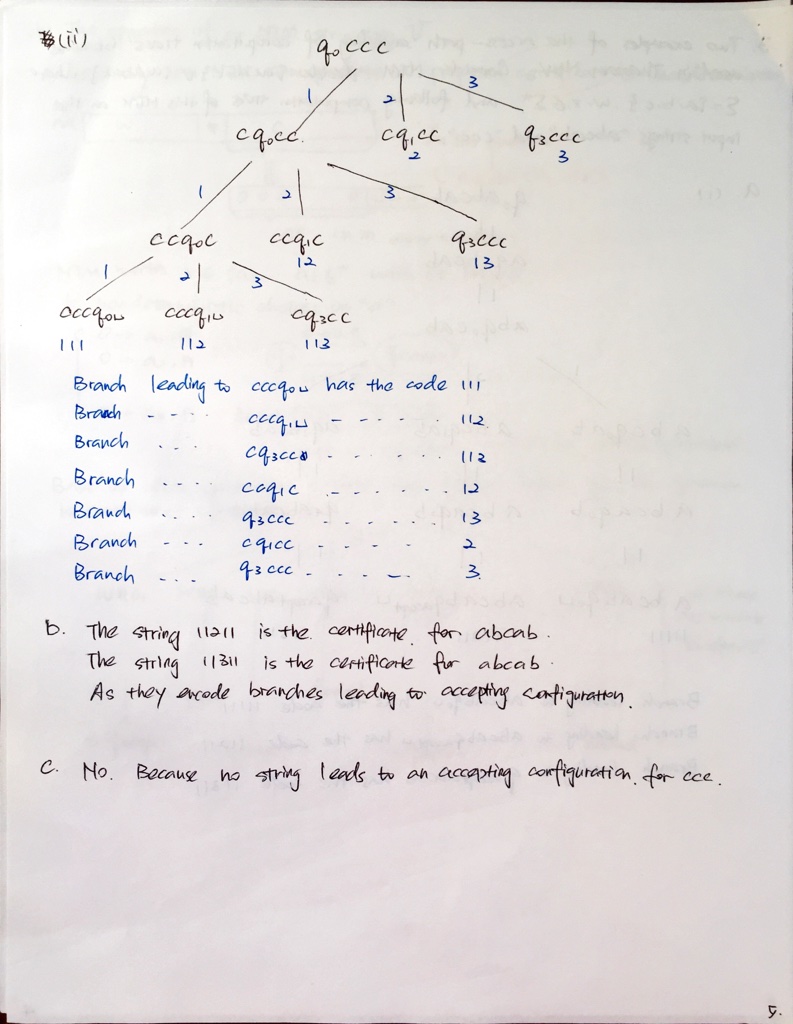 (ii)
q₀ccc
1 2 3
cq₀cc. cq₁cc q₃ccc
2 3
1 2 3
ccq₀c ccq₁c q₃ccc
12 13
1 2 3
cccq₀⊔ cccq₁⊔ cq₃cc
111 112 113
Branch leading to cccq₀⊔ has the code 111
Branch - - . . cccq₁⊔ - - . . . . 112
Branch . . . cq₃cc . - - . . . . 112
Branch . . . . ccq₁c . - - . . . . 12
Branch . . . . q₃ccc . . . . . . . 13
Branch - - . . cq₁cc . - - - - 2
Branch . . . q₃ccc . . - . - 3.
b. The string 11211 is the certificate for abcab.
The string 11311 is the certificate for abcab.
As they encode branches leading to accepting configuration.
c. No. Because no string leads to an accepting configuration for ccc.
5.